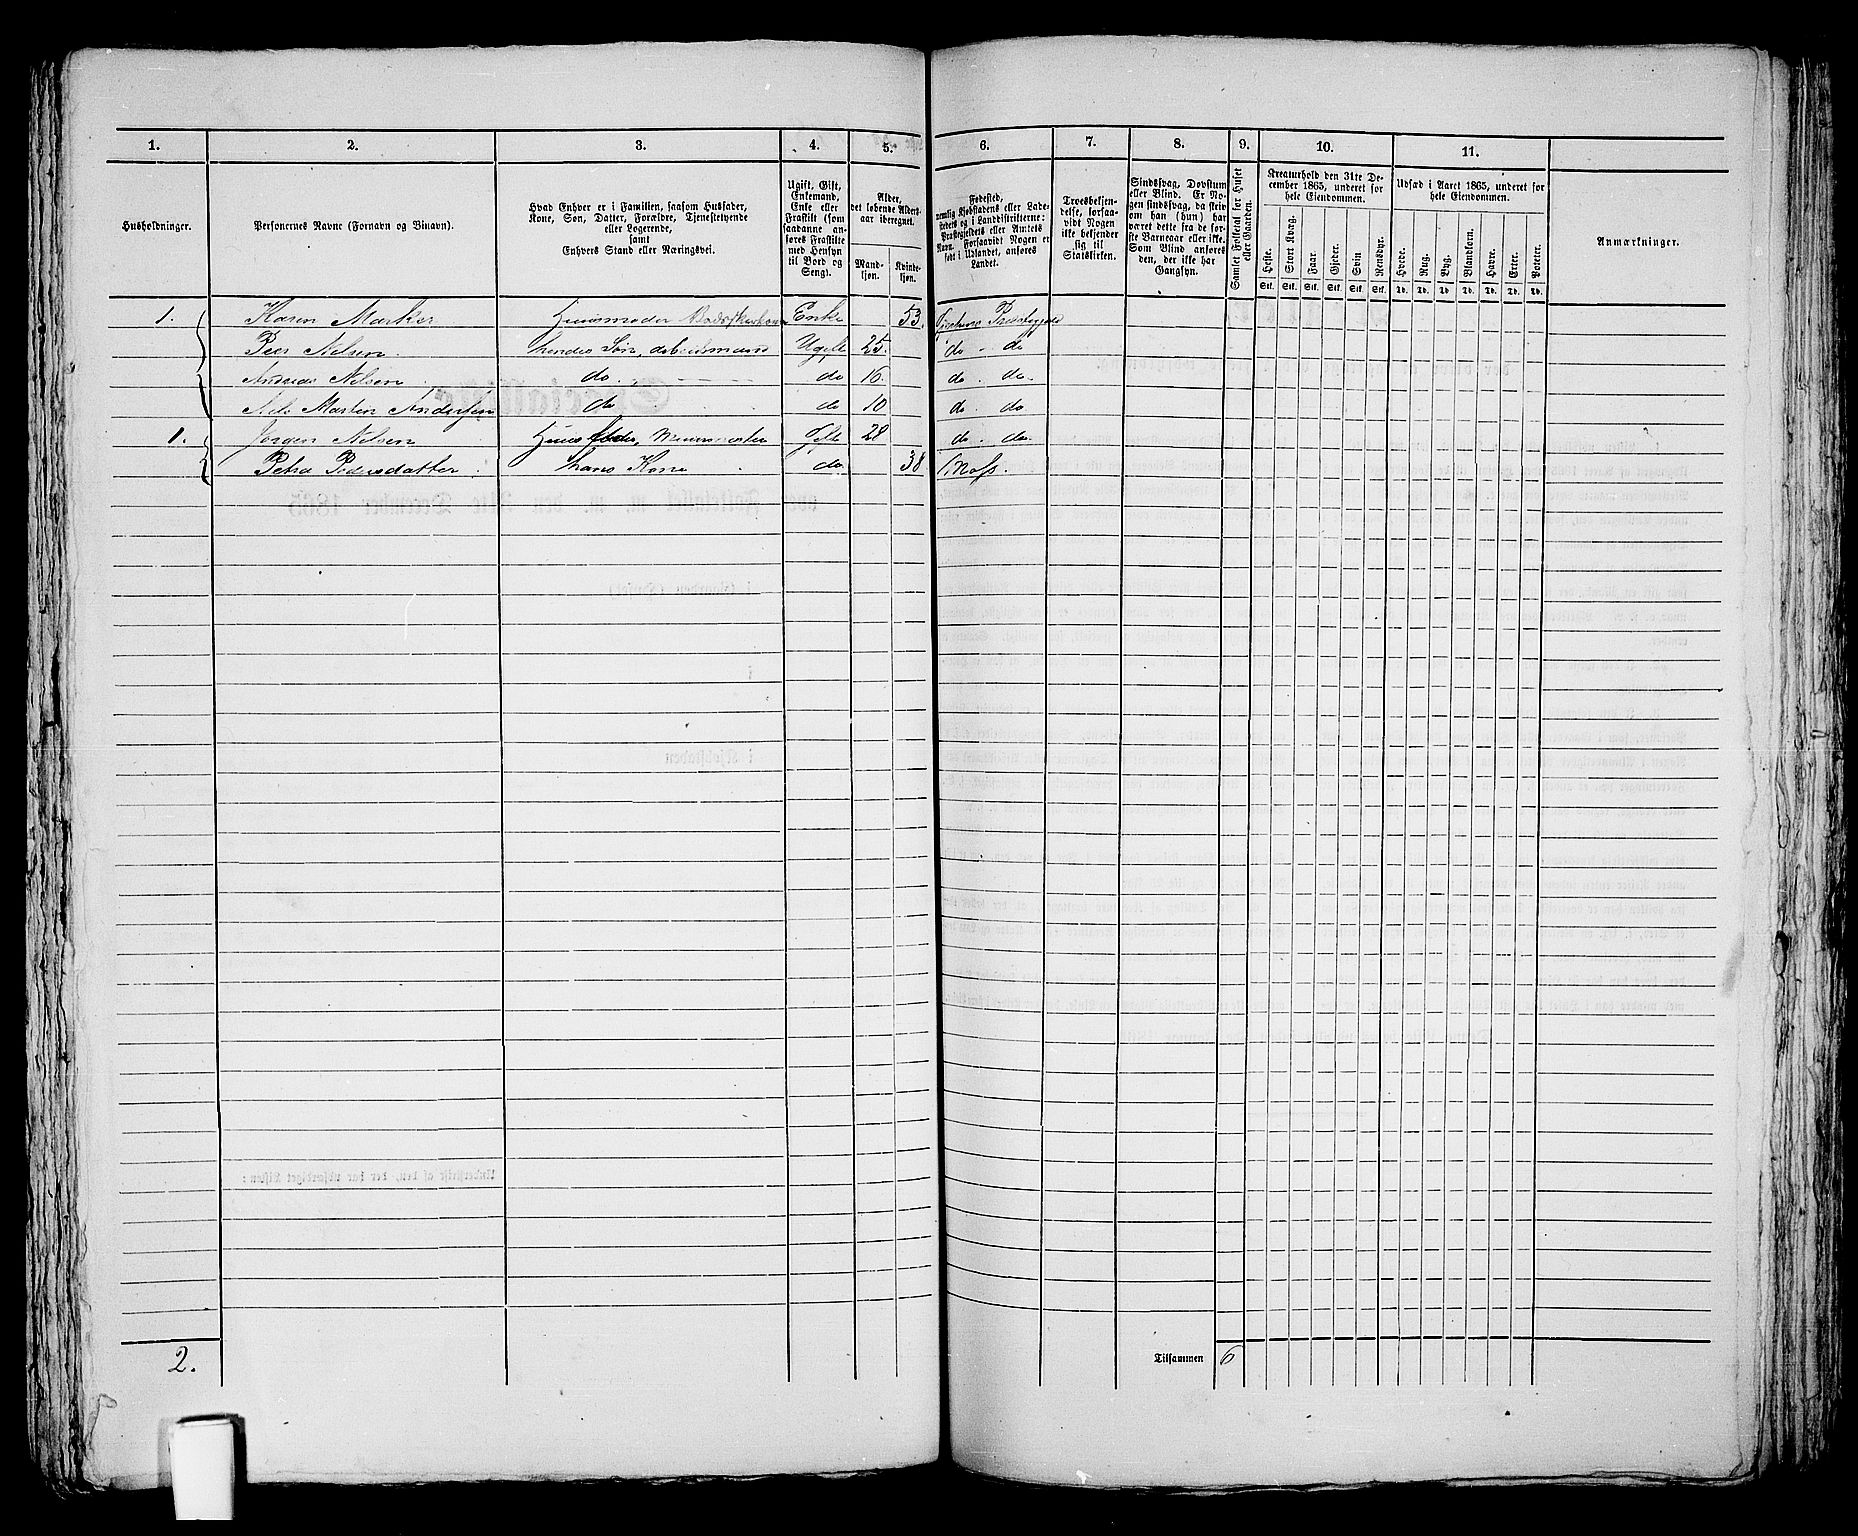 1. 2. 3. 4. 5. 6. 7. 8. 9. 10. 11.
Husholdninger.
Personernes Navne (Fornavn og Binavn).
Hvad Enhver er i Familien, saasom Husfader,
Kone, Søn, Datter, Forældre, Tjenestetyende
eller Logerende,
samt
Enhvers Stand eller Næringsvei.
Ugift, Gift,
Enkemand,
Enke eller
Fraskilt (som
saadanne an-
føres Fraskilte
med Hensyn
til Bord og
Seng).
Alder,
det løbende Alders-
aar iberegnet.
Mand-
kjøn.
Kvinde-
kjøn.
Fødested,
nemlig Kjøbstadens eller Lade-
stedets og i Landdistrikterne:
Præstegjeldets eller Amtets
Navn. Forsaavidt Nogen er
født i Udlandet, anføres
Landet.
Troesbekjen-
delse, forsaa-
vidt Nogen
ikke bekjender
sig til
Statskirken.
Sindssvag, Døvstum
eller Blind. Er No-
gen sindssvag, da skriv
om han (hun) har
været dette fra de før-
ste Barneaar eller ikke.
Som Blind anføres
den, der ikke har
Gangsyn.
Samlet Folketal for Huset
eller Gaarden.
Kreaturhold den 31te De-
cember 1865, underet for
hele Eiendommen.
Heste. Stort Kvæg. Faar. Gjeder. Svin Rensdyr.
Stk. Stk. Stk. Stk. Stk. Stk.
Udsæd i Aaret 1865, underet for
hele Eiendommen.
Hvede. Rug. Byg. Blandkorn. Havre. Erter. Poteter.
Td. Td. Td. Td. Td. Td. Td.
Anmærkninger.
1. Karen Marker Huusmoder Enke 53.
Peer Nelsen. hendes Søn, arbeidsmand Ugift 25. do - do
Andreas Nelsen do. do 16. do. do.
Nels Martin Andersen do do 10 do. do
1. Jørgen Nelsen Huusfader, Gift 28 do. do.
Petra Pedersdatter. hans Kone do. 38 Moss.
2. Tilsammen 6